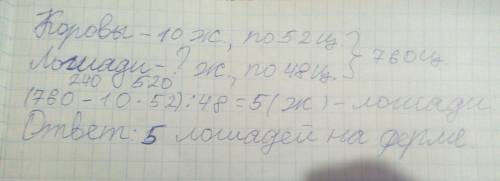 Коровы - 10 ж, по 52 ц. } 760 ц
Лошади - ? ж, по 48 ц.
240 520
(760 - 10 · 52) : 48 = 5 (ж) - лошади
Ответ: 5 лошадей на ферме